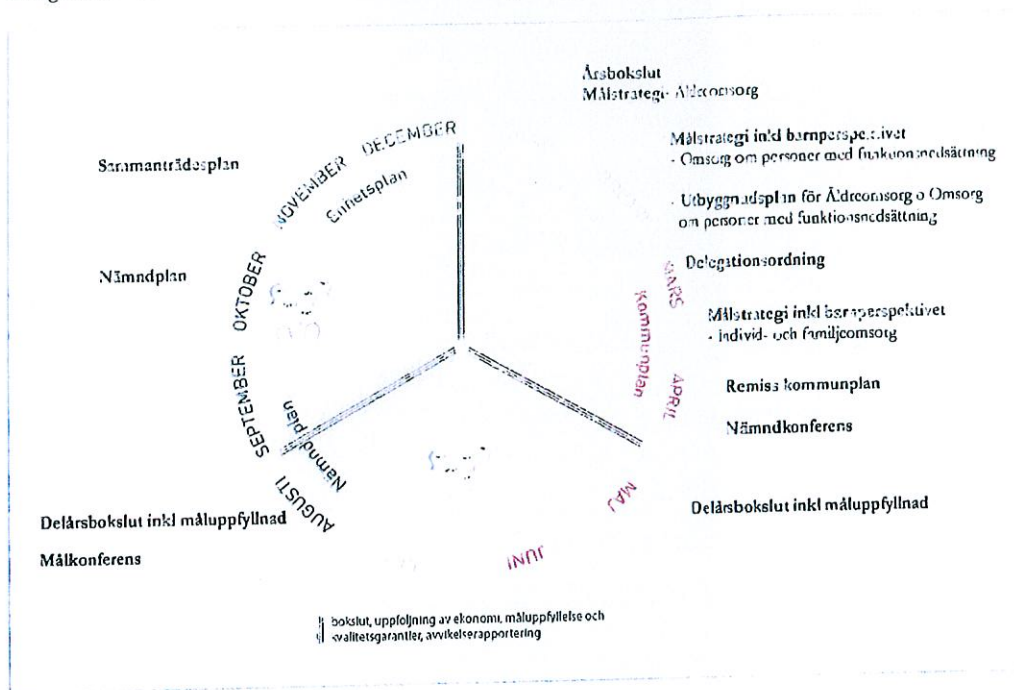 Årsbokslut
Målstrategi- Äldreomsorg
Målstrategi inkl barnperspektivet
- Omsorg om personer med funktionsnedsättning
- Utbyggnadsplan för Äldreomsorg o Omsorg
om personer med funktionsnedsättning
Delegationsordning
Målstrategi inkl barnperspektivet
- individ- och familjeomsorg
Remiss kommunplan
Nämndkonferens
Delårsbokslut inkl måluppfyllnad
MARS
APRIL
Kommunplan
MAJ
JUNI
AUGUSTI
SEPTEMBER
Nämndplan
OKTOBER
NOVEMBER
DECEMBER
Enhetsplan
Sammanträdesplan
Nämndplan
Delårsbokslut inkl måluppfyllnad
Målkonferens
bokslut, uppföljning av ekonomi, måluppfyllelse och
kvalitetsgarantier, avvikelserapportering